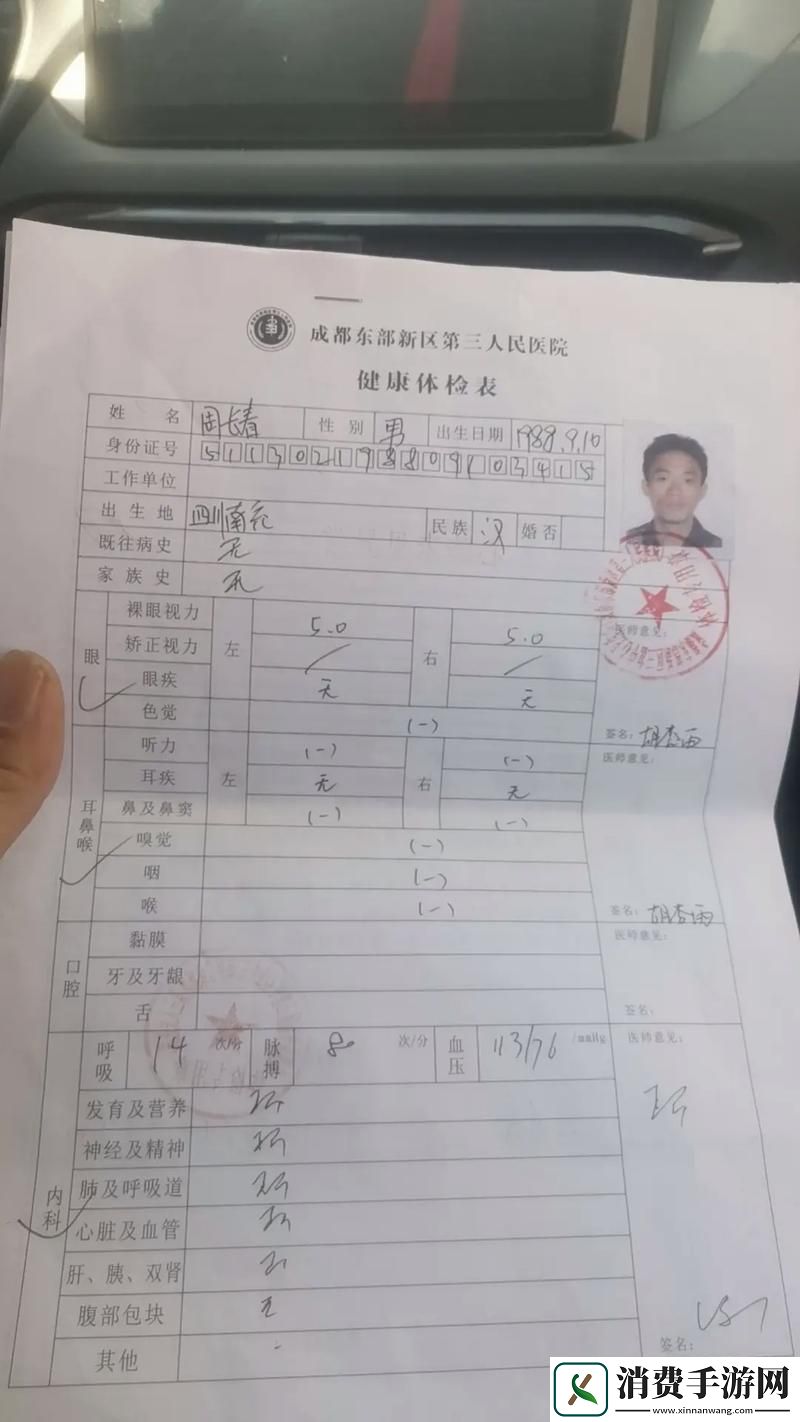 成都东部新区第三人民医院
健康体检表
姓名 周长春 性别 男 出生日期 1988.9.10
身份证号 511302198809103415
工作单位
出生地 四川南充 民族 汉 婚否
既往病史 无
家族史 无
眼 裸眼视力 左 5.0 右 5.0 医师意见:
矫正视力 / /
眼疾 无 无
色觉 (-) 签名: 胡杏雨
耳鼻喉 听力 左 (-) 右 (-) 医师意见:
耳疾 无 无
鼻及鼻窦 (-) (-)
嗅觉 (-)
咽 (-)
喉 (-) 签名: 胡杏雨
口腔 黏膜 医师意见:
牙及牙龈
舌 签名:
内科 呼吸 14 次/分 脉搏 80 次/分 血压 113/76 /mmHg 医师意见:
发育及营养
神经及精神
肺及呼吸道
心脏及血管
肝、胰、双肾
腹部包块 无
其他 - 签名:
消费手游网
www.xinnanwang.com